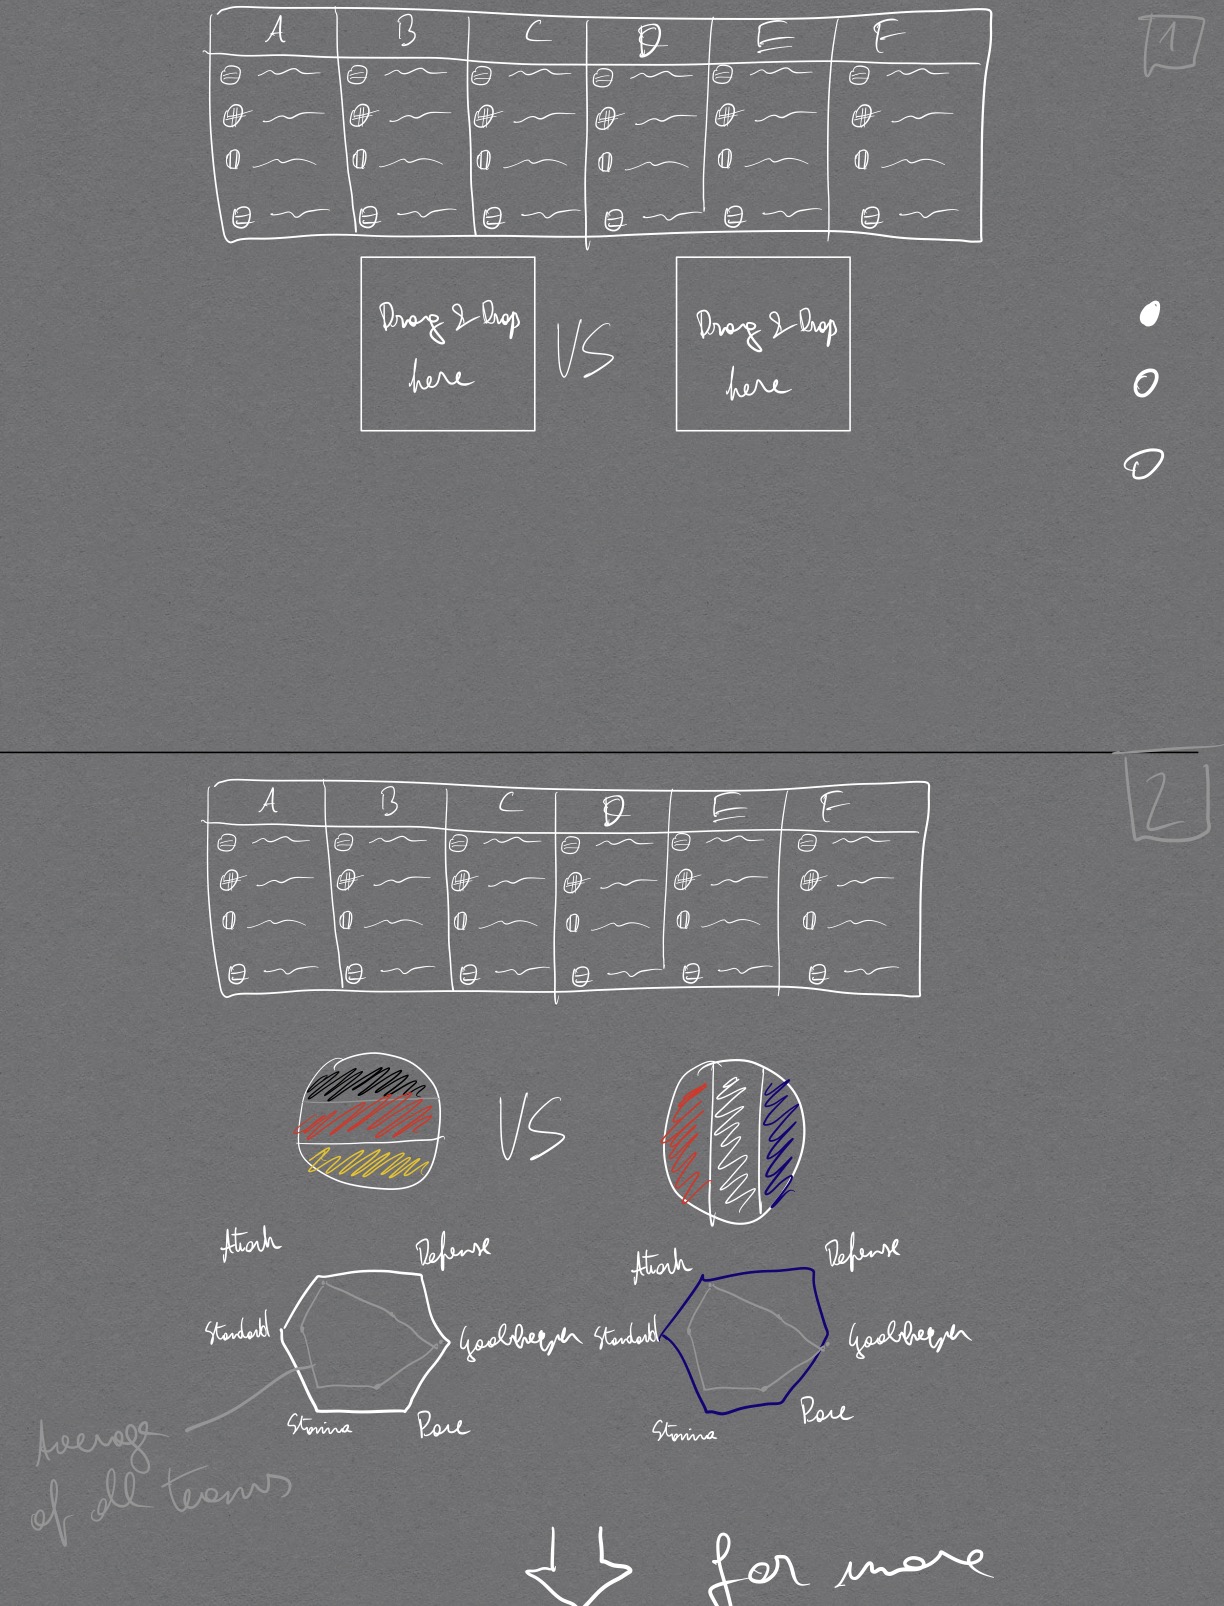 1
A B C D E F
Drag & Drop
here
VS
Drag & Drop
here
2
A B C D E F
VS
Attack
Defense
Standard
Goalkeeper
Stamina
Pace
Attack
Defense
Standard
Goalkeeper
Stamina
Pace
Average
of all teams
for more